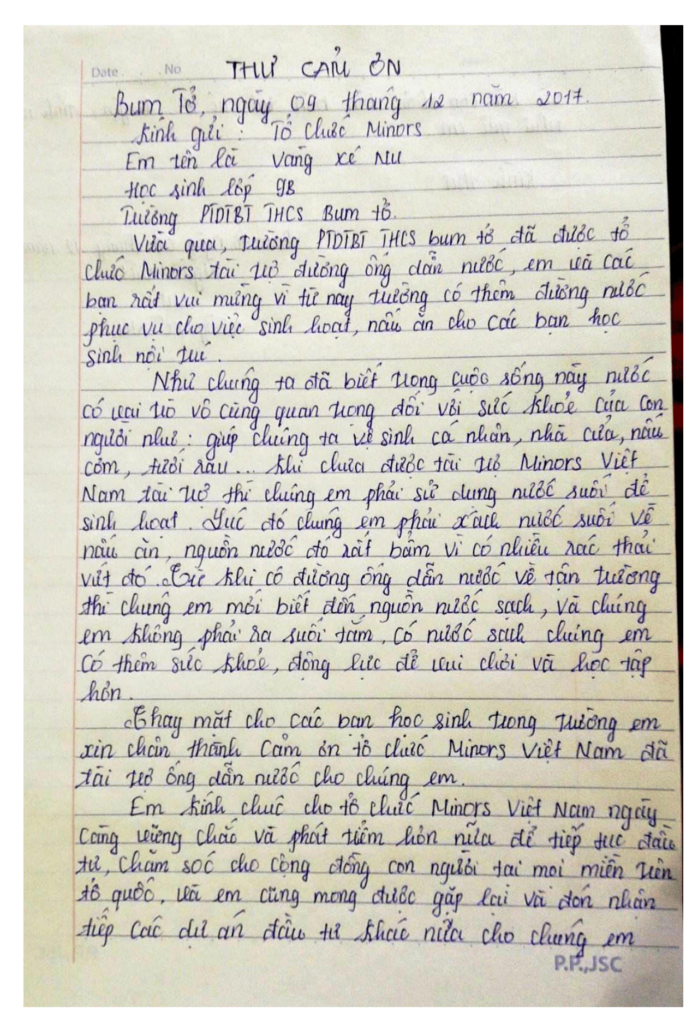 Date No THƯ CẢM ƠN
Bum Tở, ngày 09 tháng 12 năm 2017.
Kính gửi : Tổ chức Minors
Em tên là Vàng Xé Nu
Học sinh lớp 9B
Trường PTDTBT THCS Bum tở.
Vừa qua, trường PTDTBT THCS bum tở đã được tổ
chức Minors tài trợ đường ống dẫn nước, em và các
bạn rất vui mừng vì từ nay trường có thêm đường nước
phục vụ cho việc sinh hoạt, nấu ăn cho các bạn học
sinh nội trú.
Như chúng ta đã biết trong cuộc sống này nước
có vai trò vô cùng quan trọng đối với sức khỏe của con
người như : giúp chúng ta vệ sinh cá nhân, nhà cửa, nấu
cơm, tưới rau... Khi chưa được tài trợ Minors Việt
Nam tài trợ thì chúng em phải sử dụng nước suối để
sinh hoạt. Lúc đó chúng em phải xách nước suối về
nấu ăn, nguồn nước đó rất bẩm vì có nhiều rác thải
vứt đó. Từ khi có đường ống dẫn nước về tận trường
thì chúng em mới biết đến nguồn nước sạch, và chúng
em không phải ra suối tắm, có nước sạch chúng em
có thêm sức khỏe, động lực để vui chơi và học tập
hơn.
Thay mặt cho các bạn học sinh trong trường em
xin chân thành cảm ơn tổ chức Minors Việt Nam đã
tài trợ ống dẫn nước cho chúng em.
Em kính chúc cho tổ chức Minors Việt Nam ngày
càng vững chắc và phát triểm hơn nữa để tiếp tục đầu
tư, chăm sóc cho cộng đồng con người tại mọi miền trên
tổ quốc, và em cũng mong được gặp lại và đón nhận
tiếp các dự án đầu tư khác nữa cho chúng em
P.P.,JSC